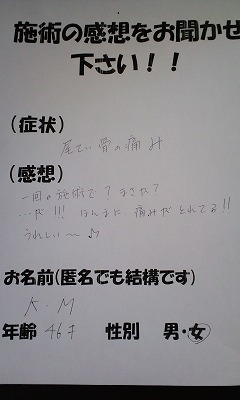 施術の感想をお聞かせ
下さい！！
（症状）
尾てい骨の痛み
（感想）
一回の施術で？まさか？
…だ!!! ほんまに 痛みがとれてる!!
うれしい〜♪
お名前（匿名でも結構です）
K・M
年齢 46才 性別 男・女